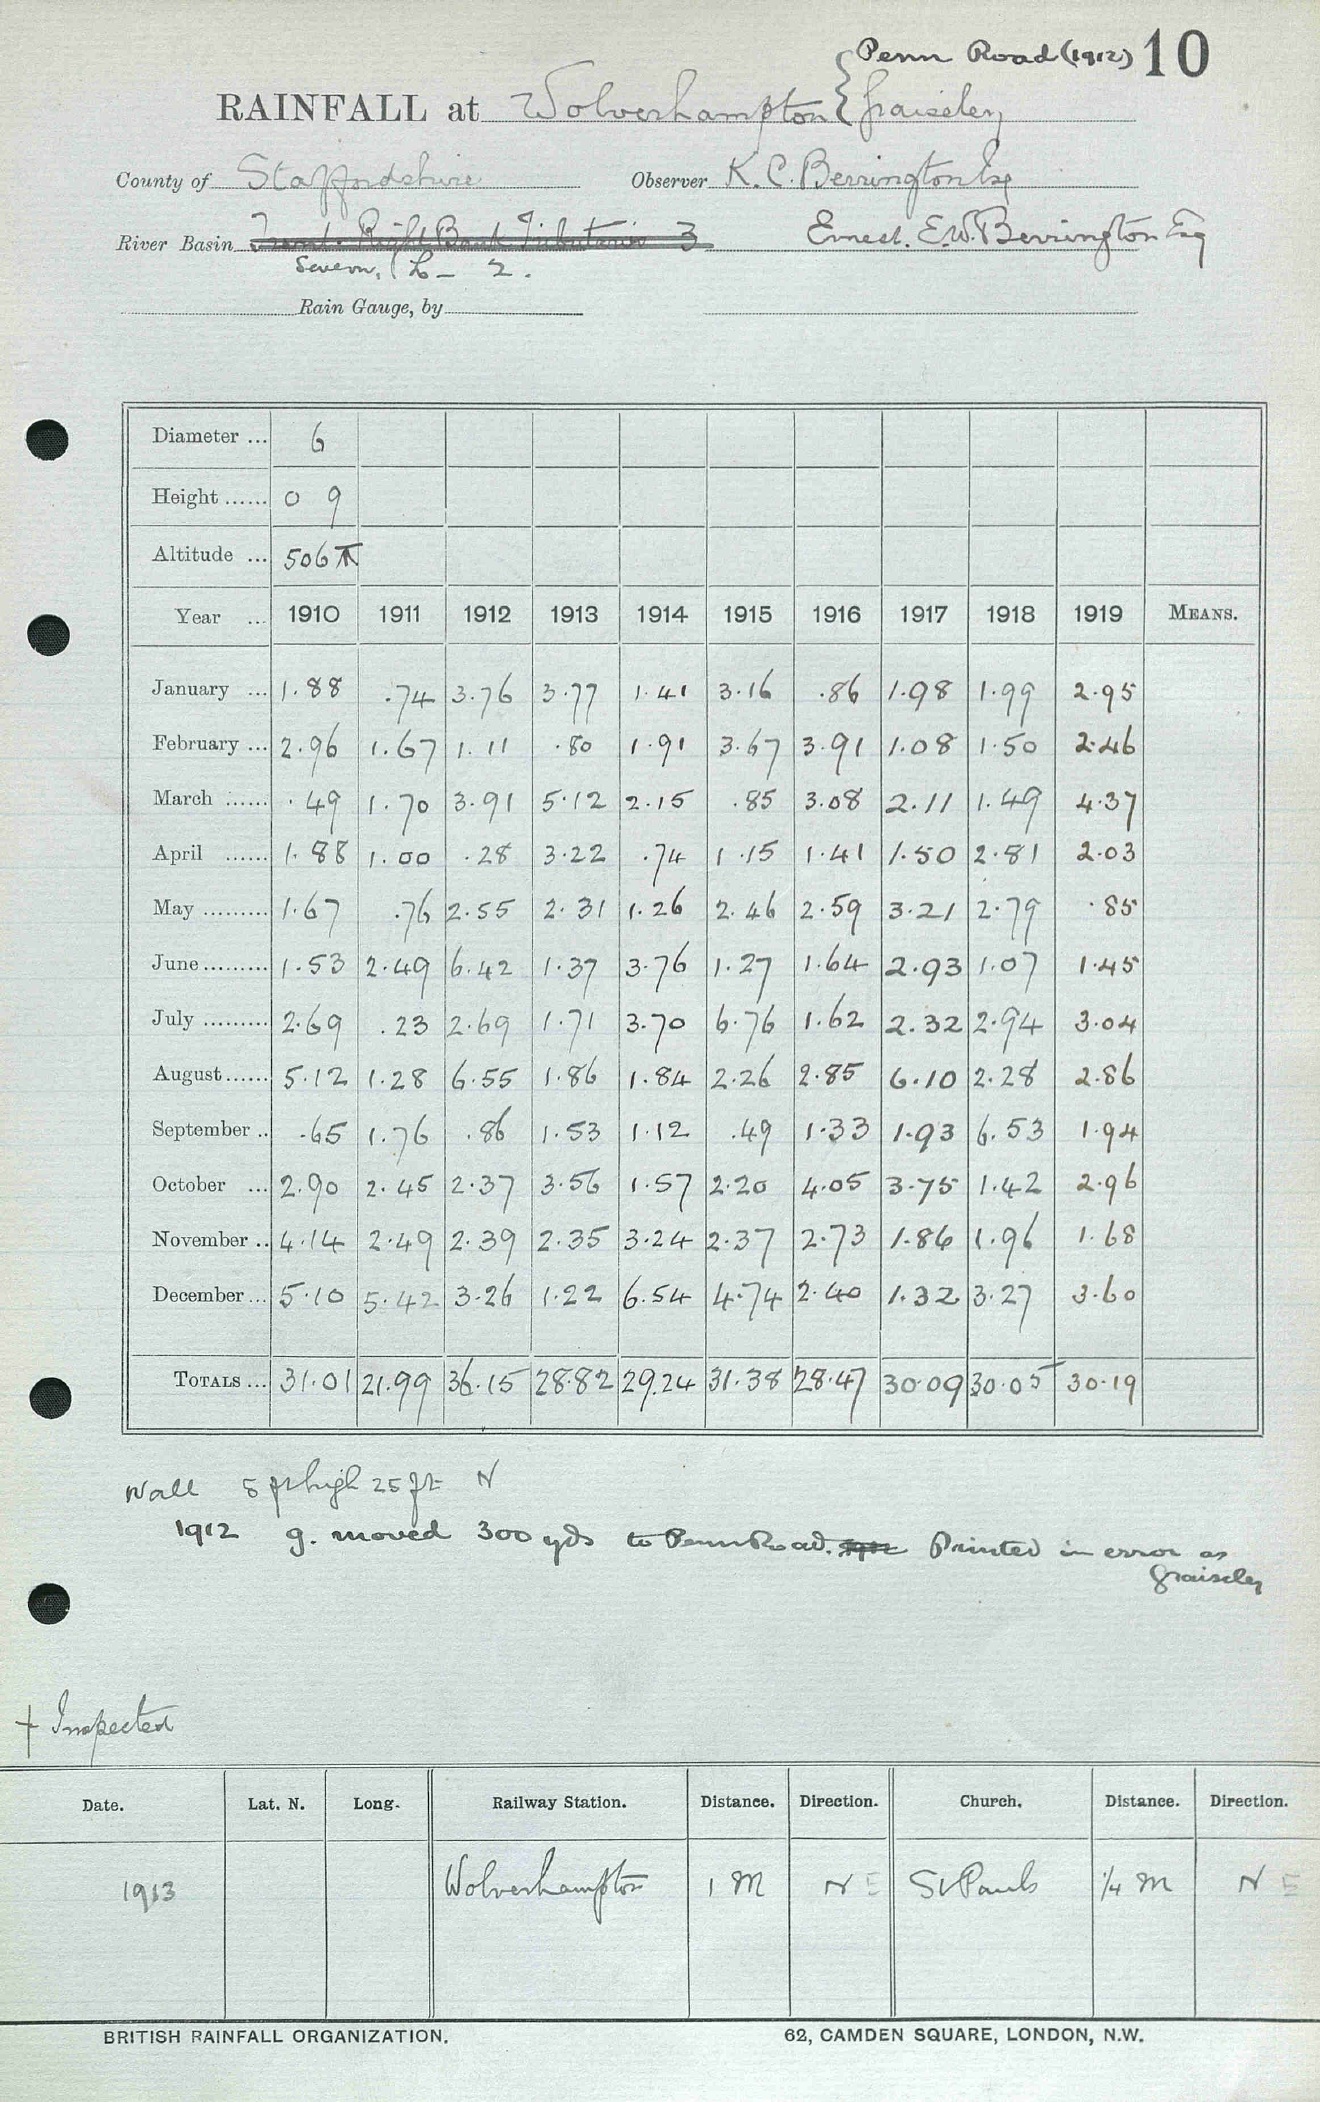 Penn Road (1912) 10
RAINFALL at Wolverhampton { Graiseley
County of Staffordshire Observer K. C. Berrington Esq
River Basin Trent. Right Bank Tributaries 3 Ernest. E.W. Berrington Esq
Severn, L - 2.
Rain Gauge, by
Diameter ... 6
Height ...... 0 9
Altitude ... 506
Year ... 1910 1911 1912 1913 1914 1915 1916 1917 1918 1919 MEANS.
January ... 1.88 .74 3.76 3.77 1.41 3.16 .86 1.98 1.99 2.95
February ... 2.96 1.67 1.11 .80 1.91 3.67 3.91 1.08 1.50 2.46
March ...... .49 1.70 3.91 5.12 2.15 .85 3.08 2.11 1.49 4.37
April ...... 1.88 1.00 .28 3.22 .74 1.15 1.41 1.50 2.81 2.03
May ......... 1.67 .76 2.55 2.31 1.26 2.46 2.59 3.21 2.79 .85
June ......... 1.53 2.49 6.42 1.37 3.76 1.27 1.64 2.93 1.07 1.45
July ......... 2.69 .23 2.69 1.71 3.70 6.76 1.62 2.32 2.94 3.04
August ...... 5.12 1.28 6.55 1.86 1.84 2.26 2.85 6.10 2.28 2.86
September .. .65 1.76 .86 1.53 1.12 .49 1.33 1.93 6.53 1.94
October ... 2.90 2.45 2.37 3.56 1.57 2.20 4.05 3.75 1.42 2.96
November .. 4.14 2.49 2.39 2.35 3.24 2.37 2.73 1.86 1.96 1.68
December ... 5.10 5.42 3.26 1.22 6.54 4.74 2.40 1.32 3.27 3.60
TOTALS ... 31.01 21.99 36.15 28.82 29.24 31.38 28.47 30.09 30.05 30.19
Wall 5 ft high 25 ft N
1912 g. moved 300 yds to Penn Road. Printed in error as
Graiseley
+ Inspected
Date. Lat. N. Long. Railway Station. Distance. Direction. Church. Distance. Direction.
1913 Wolverhampton 1 M N E St Pauls 1/4 M N E
BRITISH RAINFALL ORGANIZATION. 62, CAMDEN SQUARE, LONDON, N.W.